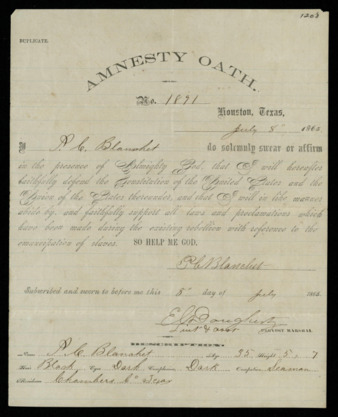 1203
DUPLICATE.
AMNESTY OATH.
No. 1891
Houston, Texas,
July 8" 1865
I, P. C. Blanchet do solemnly swear or affirm
in the presence of Almighty God, that I will hereafter
faithfully defend the Constitution of the United States and the
Union of the States thereunder, and that I will in like manner
abide by, and faithfully support all laws and proclamations which
have been made during the existing rebellion with reference to the
emancipation of slaves. SO HELP ME GOD,
P. C. Blanchet
Subscribed and sworn to before me this 8" day of July 1865.
PROVOST MARSHAL
DESCRIPTION:
Name P. C. Blanchet Age 35 Height 5, 7
Hair Black Eyes Dark Complexion Dark Occupation Seaman
Residence Chambers Co Texas